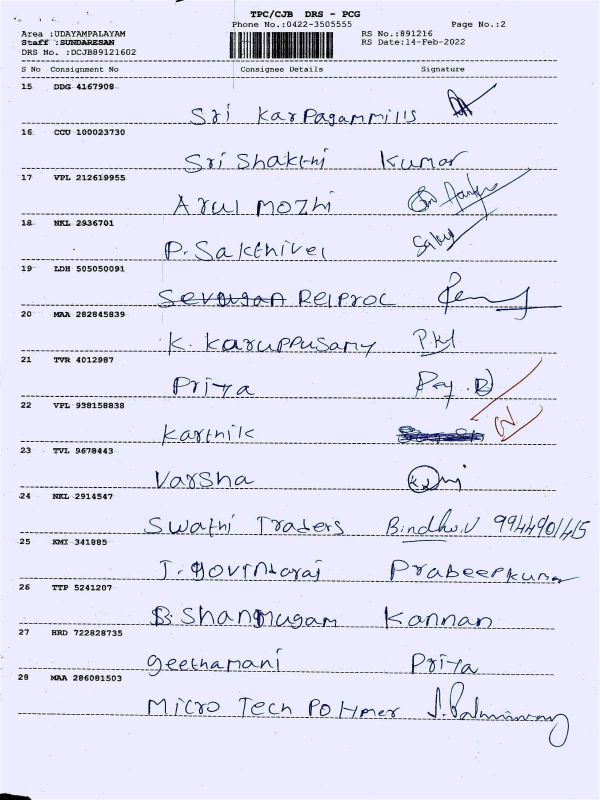 TPC/CJB DRS - PCG
Phone No.:0422-3505555 Page No.:2
Area :UDAYAMPALAYAM RS No.:891216
Staff :SUNDARESAN RS Date:14-Feb-2022
DRS No. :DCJB89121602
S No Consignment No Consignee Details Signature
15 DDG 4167908
Sri Karpagammills
16 CCU 100023730
Sri Shakthi Kumar
17 VPL 212619955
Arul Mozhi
18 NKL 2936701
P. Sakthivel Saky
19 LDH 505050091
Relproc
20 MAA 282845839
K. Karuppusamy P.M
21 TVR 4012987
Priya
22 VPL 938158838
Karthik
23 TVL 9678443
Varsha
24 NKL 2914547
Swathi Traders Bindhu.V 9944901415
25 KMI 341885
T. Govindaraj Pradeepkumar
26 TTP 5241207
B. Shanmugam Kannan
27 HRD 722828735
geethamani Priya
28 MAA 286081503
Micro Tech Polymer